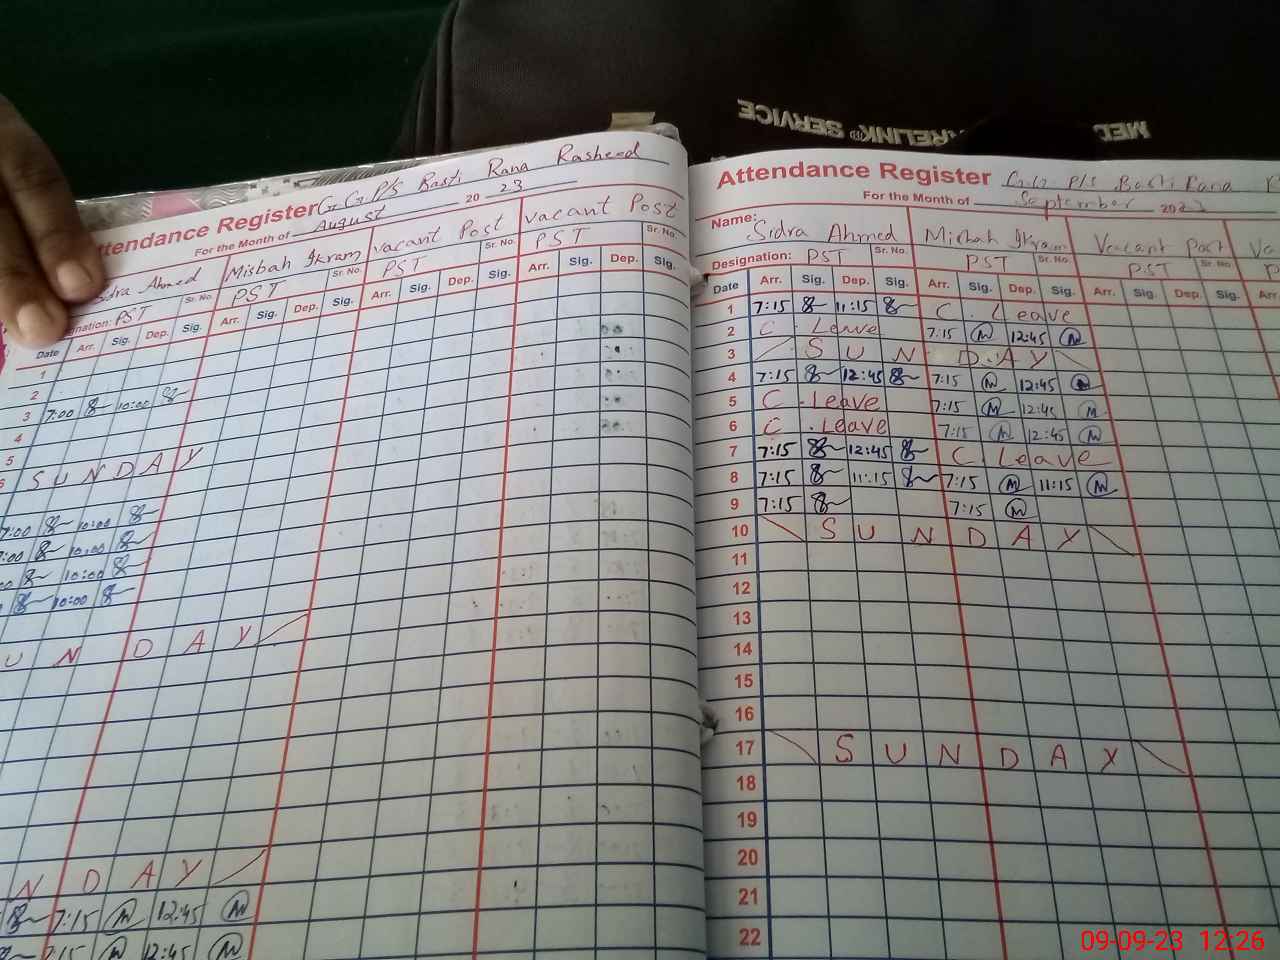 SERVICE
RELINK
MED
Attendance Register G.G.P/S Basti Rana Rasheed
For the Month of August 2023
Sidra Ahmed Misbah Ikram Vacant Post Vacant Post
Sr. No. Sr. No. Sr. No. Sr. No.
gnation: PST PST PST PST
Date Arr. Sig. Dep. Sig. Arr. Sig. Dep. Sig. Arr. Sig. Dep. Sig. Arr. Sig. Dep. Sig.
1
2
3 7:00 10:00
4
5
6 SUNDAY
7:00 10:00
:00 10:00
00 10:00
10:00
UNDAY
NDAY
7:15 12:45
7:15 12:45
Attendance Register G.G. P/S Basti Rana R
For the Month of September 2023
Name: Sidra Ahmed Misbah Ikram Vacant Post Va
Designation: PST Sr. No. PST Sr. No. PST Sr. No. P
Date Arr. Sig. Dep. Sig. Arr. Sig. Dep. Sig. Arr. Sig. Dep. Sig. Arr.
1 7:15 11:15 C. Leave
2 C. Leave 7:15 M 12:45 M
3 SUNDAY
4 7:15 12:45 7:15 M 12:45 M
5 C. Leave 7:15 M 12:45 M
6 C. Leave 7:15 M 12:45 M
7 7:15 12:45 C. Leave
8 7:15 11:15 7:15 M 11:15 M
9 7:15 7:15 M
10 SUNDAY
11
12
13
14
15
16
17 SUNDAY
18
19
20
21
22
09-09-23 12:26